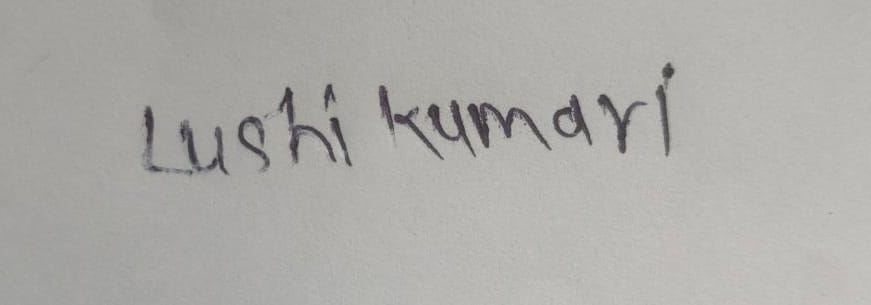 Lushi kumari